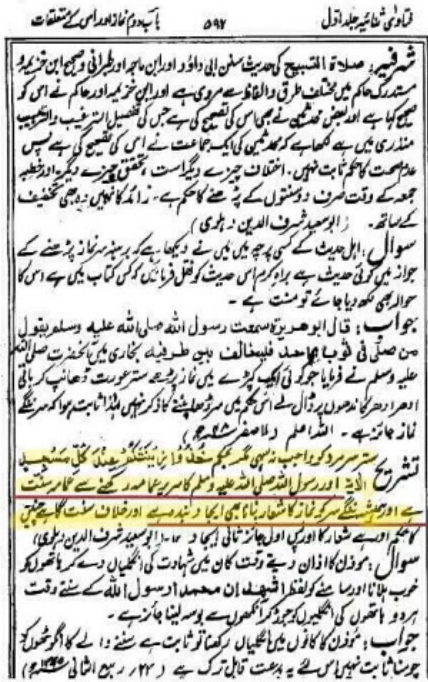 فتاویٰ ثنائیہ جلد اول ۵۹۷ باب دوم نماز اور اس کے متعلقات
شرفیہ: صلاۃ التسبیح کی حدیث سنن ابی داؤد و ابن ماجہ اور طبرانی و صحیح ابن خزیمہ و
مستدرک حاکم میں مختلف طرق و الفاظ سے مروی ہے اور ابن خزیمہ اور حاکم نے اس کو
صحیح کہا ہے اور بعض محدثین نے بھی اس کی تصحیح کی ہے جس کی تفصیل الترغیب والترہیب
منذری میں ہے لکھا ہے کہ محدثین کی ایک جماعت نے اس کی تصحیح کی ہے پس
عدم صحت کا حکم ثابت نہیں۔ اختلاف چیزے دیگر است، تحقیق چیزے دیگر اور خطبہ
جمعہ کے وقت صرف دو سنتوں کے پڑھنے کا حکم ہے۔ زائد کا نہیں وہ بھی تخفیف
کے ساتھ۔ (ابو سعید شرف الدین دہلوی)
سوال: اہل حدیث کے کسی پرچے میں میں نے دیکھا ہے کہ برہنہ سر نماز پڑھنے کے
جواز میں کوئی حدیث ہے براہ کرم اس حدیث کو نقل فرمائیں کہ کس کتاب میں ہے اس کا
حوالہ بھی لکھ دیا جائے تو منت ہے۔
جواب: قال ابو ھریرۃ سمعت رسول اللہ صلی اللہ علیہ وسلم یقول
من صلی فی ثوب واحد فلیخالف بین طرفیہ بخاری میں آنحضرت صلی اللہ
علیہ وسلم نے فرمایا جو کوئی ایک کپڑے میں نماز پڑھے ستر عورت ڈھانپ کر باقی
ادھر ادھر کا کندھوں پر ڈال لے اس حکم میں سر ڈھانپنے کا ذکر نہیں لہٰذا ثابت ہوا کہ سر ننگے
نماز جائز ہے۔ اللہ اعلم
تشریح سر ستر مرد کو واجب نہ سہی مگر بحکم خُذُوْا زِيْنَتَكُمْ عِنْدَ كُلِّ مَسْجِدٍ
الآیۃ اور رسول اللہ صلی اللہ علیہ وسلم کا سر پر عمامہ رکھنے سے عمامہ سنت
ہے اور ہمیشہ ننگے سر کو نماز کا شعار بنانا بھی ایجاد بندہ ہے اور خلاف سنت گاہے چنیں
کا حکم اور ہے شعار کا اور پس اول جائز ثانی ایجاد (ابو سعید شرف الدین دہلوی)
سوال: مؤذن کا اذان دیتے وقت کان میں شہادت کی انگلیاں دے کر ہاتھوں کو
خوب ہلانا اور سامنے کو لفظ اشھد ان محمد ارسول اللہ کے سنتے وقت
ہر دو ہاتھوں کی انگلیوں کو جوڑ کر آنکھوں سے بوسہ لینا جائز ہے۔
جواب: مؤذن کا کانوں میں انگلیاں رکھنا تو ثابت ہے سننے والے کا انگوٹھوں کو
چومنا ثابت نہیں اس لئے یہ بدعت قابل ترک ہے (۲۳ ربیع الثانی